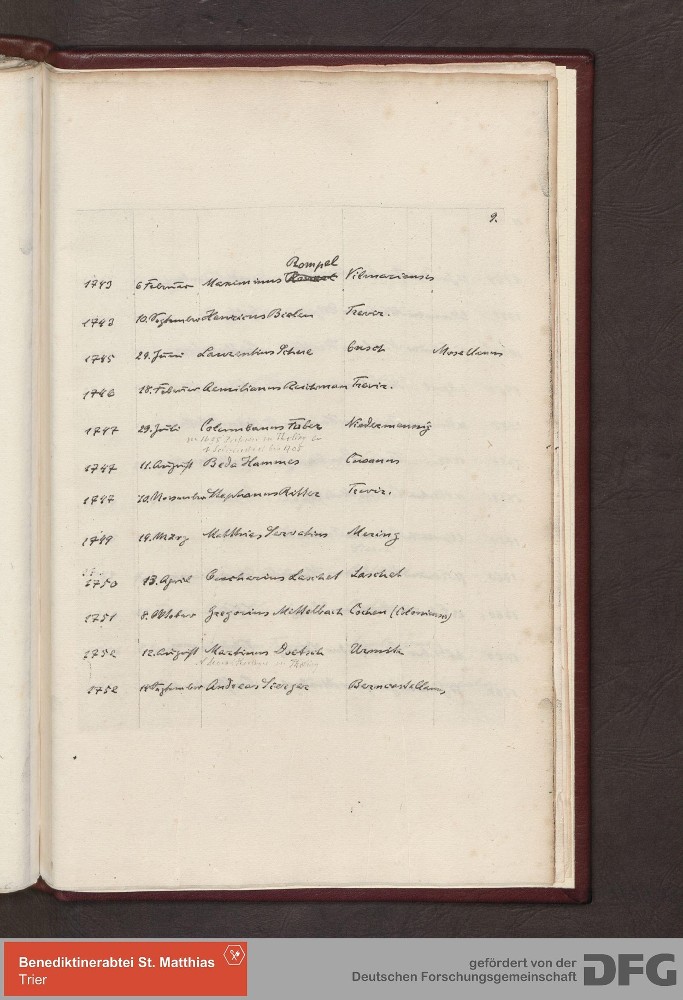 9.
Rompel
1743 6 Februar Maximinus Vilmariensis
1743 10. September Henricus Bielen Trevir.
1745 29. Juni Laurentius Scheue Ensch Mosellanus
1746 18. Februar Aemilianus Reichman Trevir.
1747 29. Juli Columbanus Faber Niedermennig
1747 11. August Beda Hammes Cusanus
1747 10. November Stephanus Ritter Trevir.
1749 19. März Matthias Servatius Mering
1750 13. April Eucharius Laschet Laschet
1751 8. Oktober Gregorius Mettelbach Cochem (Coloniensis)
1752 12. August Martinus Doetsch Urmitz
1752 14 September Andreas Sierger Berncastellanus
Benediktinerabtei St. Matthias
Trier
gefördert von der
Deutschen Forschungsgemeinschaft DFG